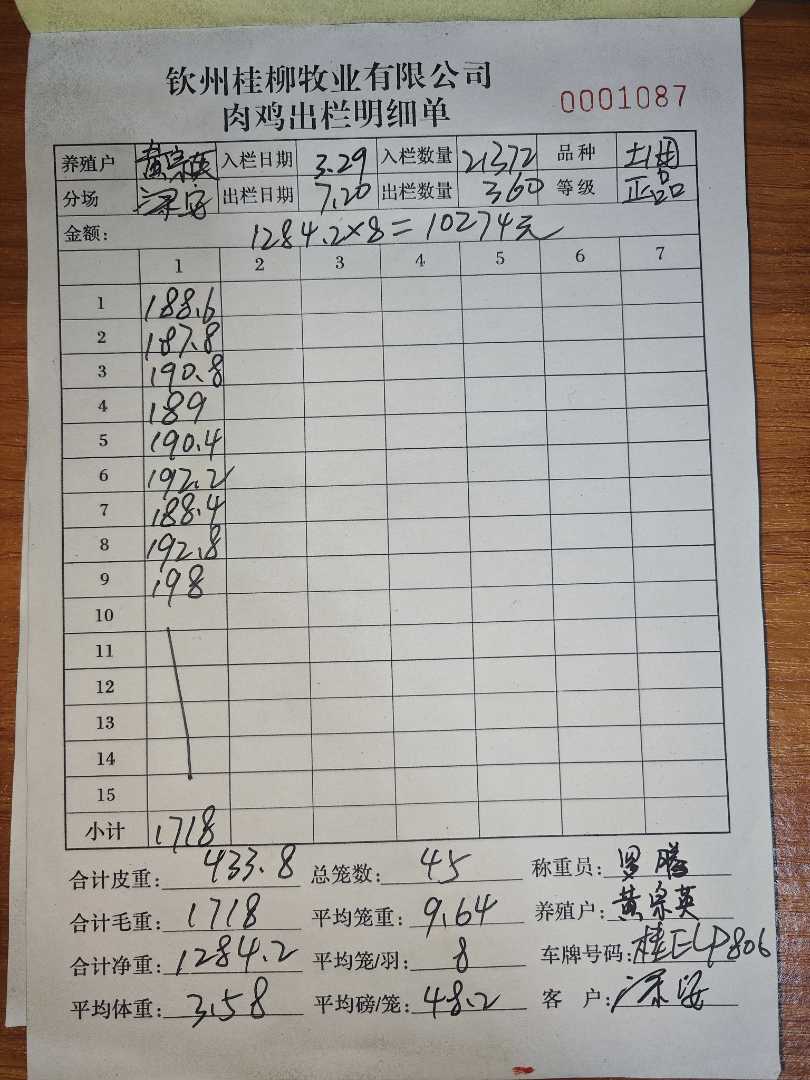 钦州桂柳牧业有限公司
肉鸡出栏明细单 0001087
养殖户 黄宗英 入栏日期 3.29 入栏数量 21372 品种
分场 深安 出栏日期 7.20 出栏数量 360 等级 正品
金额: 1284.2×8=10274元
1 2 3 4 5 6 7
1 188.6
2 187.8
3 190.8
4 189
5 190.4
6 192.2
7 188.4
8 192.8
9 198
10
11
12
13
14
15
小计 1718
合计皮重: 433.8 总笼数: 45 称重员: 罗
合计毛重: 1718 平均笼重: 9.64 养殖户: 黄宗英
合计净重: 1284.2 平均笼/羽: 8 车牌号码: 桂ELP806
平均体重: 3.58 平均磅/笼: 48.2 客户: 深安